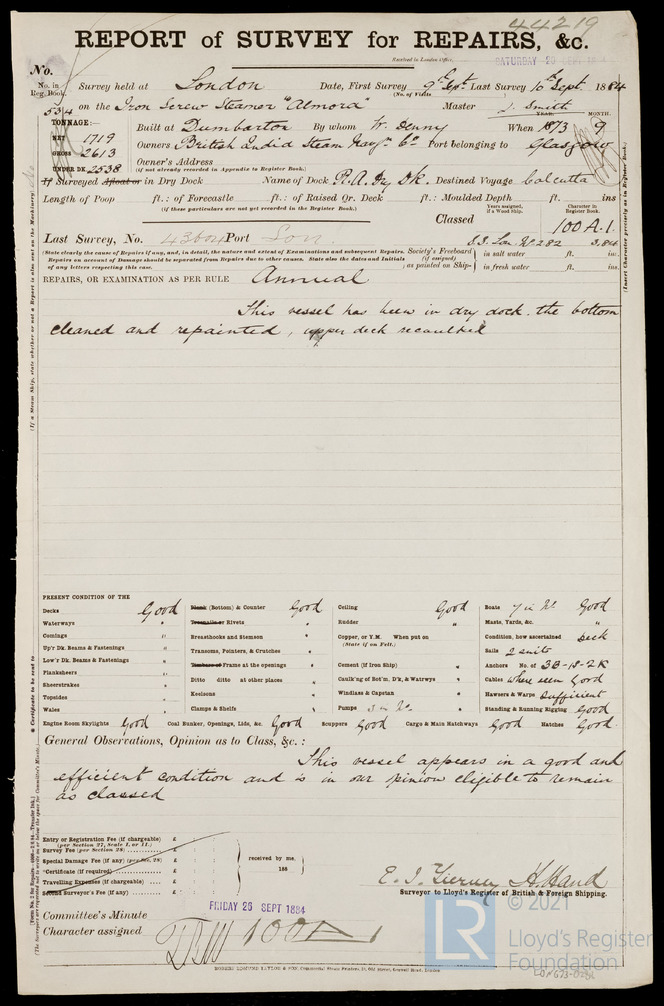 44219
REPORT of SURVEY for REPAIRS, &c.
Received in London Office,
SATURDAY 20 SEPT 18
No.
No. in Reg. Book. Survey held at London Date, First Survey 9th Sept. Last Survey 10th Sept. 1884
(No. of Visits )
534 on the Iron Screw Steamer "Almora" Master J. Smith
TONNAGE:— YEAR. MONTH.
NET 1719 Built at Dumbarton By whom W. Denny When 1873 9
GROSS 2613 Owners British India Steam Navgn Co Port belonging to Glasgow
UNDER DK 2538 Owner's Address
(if not already recorded in Appendix to Register Book.)
If Surveyed Afloat or in Dry Dock Name of Dock R.A. Dry Dk. Destined Voyage Calcutta
Length of Poop ft.: of Forecastle ft.: of Raised Qr. Deck ft.: Moulded Depth ft. ins
(if these particulars are not yet recorded in the Register Book.)
Years assigned, if a Wood Ship. Character in Register Book.
Classed 100 A.1.
Last Survey, No. 43604 Port Lon
S.S. Lon. No 2 82 3,84
(State clearly the cause of Repairs if any, and, in detail, the nature and extent of Examinations and subsequent Repairs. Repairs on account of Damage should be separated from Repairs due to other causes. State also the dates and Initials of any letters respecting this case.
Society's Freeboard (if assigned) as painted on Ship— in salt water ft. in.
in fresh water ft. in.
REPAIRS, OR EXAMINATION AS PER RULE Annual
This vessel has been in dry dock. the bottom
cleaned and repainted, upper deck recaulked
PRESENT CONDITION OF THE
Decks Good Blank (Bottom) & Counter Good Ceiling Good Boats 7 in No Good
Waterways " Treenails or Rivets " Rudder " Masts, Yards, &c. "
Comings " Breasthooks and Stemson " Copper, or Y.M. When put on (State if on Felt.) Condition, how ascertained Deck
Up'r Dk. Beams & Fastenings " Transoms, Pointers, & Crutches " Sails 2 suits
Low'r Dk. Beams & Fastenings " Timbers or Frame at the openings " Cement (if Iron Ship) " Anchors No. of 3B-1S-2K
Planksheers " Ditto ditto at other places " Caulk'ng of Bot'm. D'k, & Watrwys " Cables where seen Good
Sheerstrakes " Keelsons " Windlass & Capstan " Hawsers & Warps Sufficient
Topsides " Clamps & Shelfs " Pumps Standing & Running Rigging Good
Wales "
Engine Room Skylights Good Coal Bunker, Openings, Lids, &c. Good Scuppers Good Cargo & Main Hatchways Good Hatches Good.
General Observations, Opinion as to Class, &c.:
This vessel appears in a good and
efficient condition and is in our pinion eligible to remain
as classed
Entry or Registration Fee (if chargeable) £
(per Section 27, Scale I. or II.)
Survey Fee (per Section 28) £
Special Damage Fee (if any) (per Sec. 28) £
*Certificate (if required) £
Travelling Expenses (if chargeable) £
Second Surveyor's Fee (if any) £
received by me,
188
E. J. Tierney H. Hand
Surveyor to Lloyd's Register of British & Foreign Shipping.
FRIDAY 26 SEPT 1884
Committee's Minute
Character assigned 100A1
ROBERT EDMUND TAYLOR & SON, Commercial Steam Printers, 19, Old Street, Goswell Road, London
(If a Steam Ship, state whether or not a Report is also sent on the Machinery)
* Certificate to be sent to
(Insert Character precisely as in Register Book.)
LR
© 2021
Lloyd's Register
Foundation